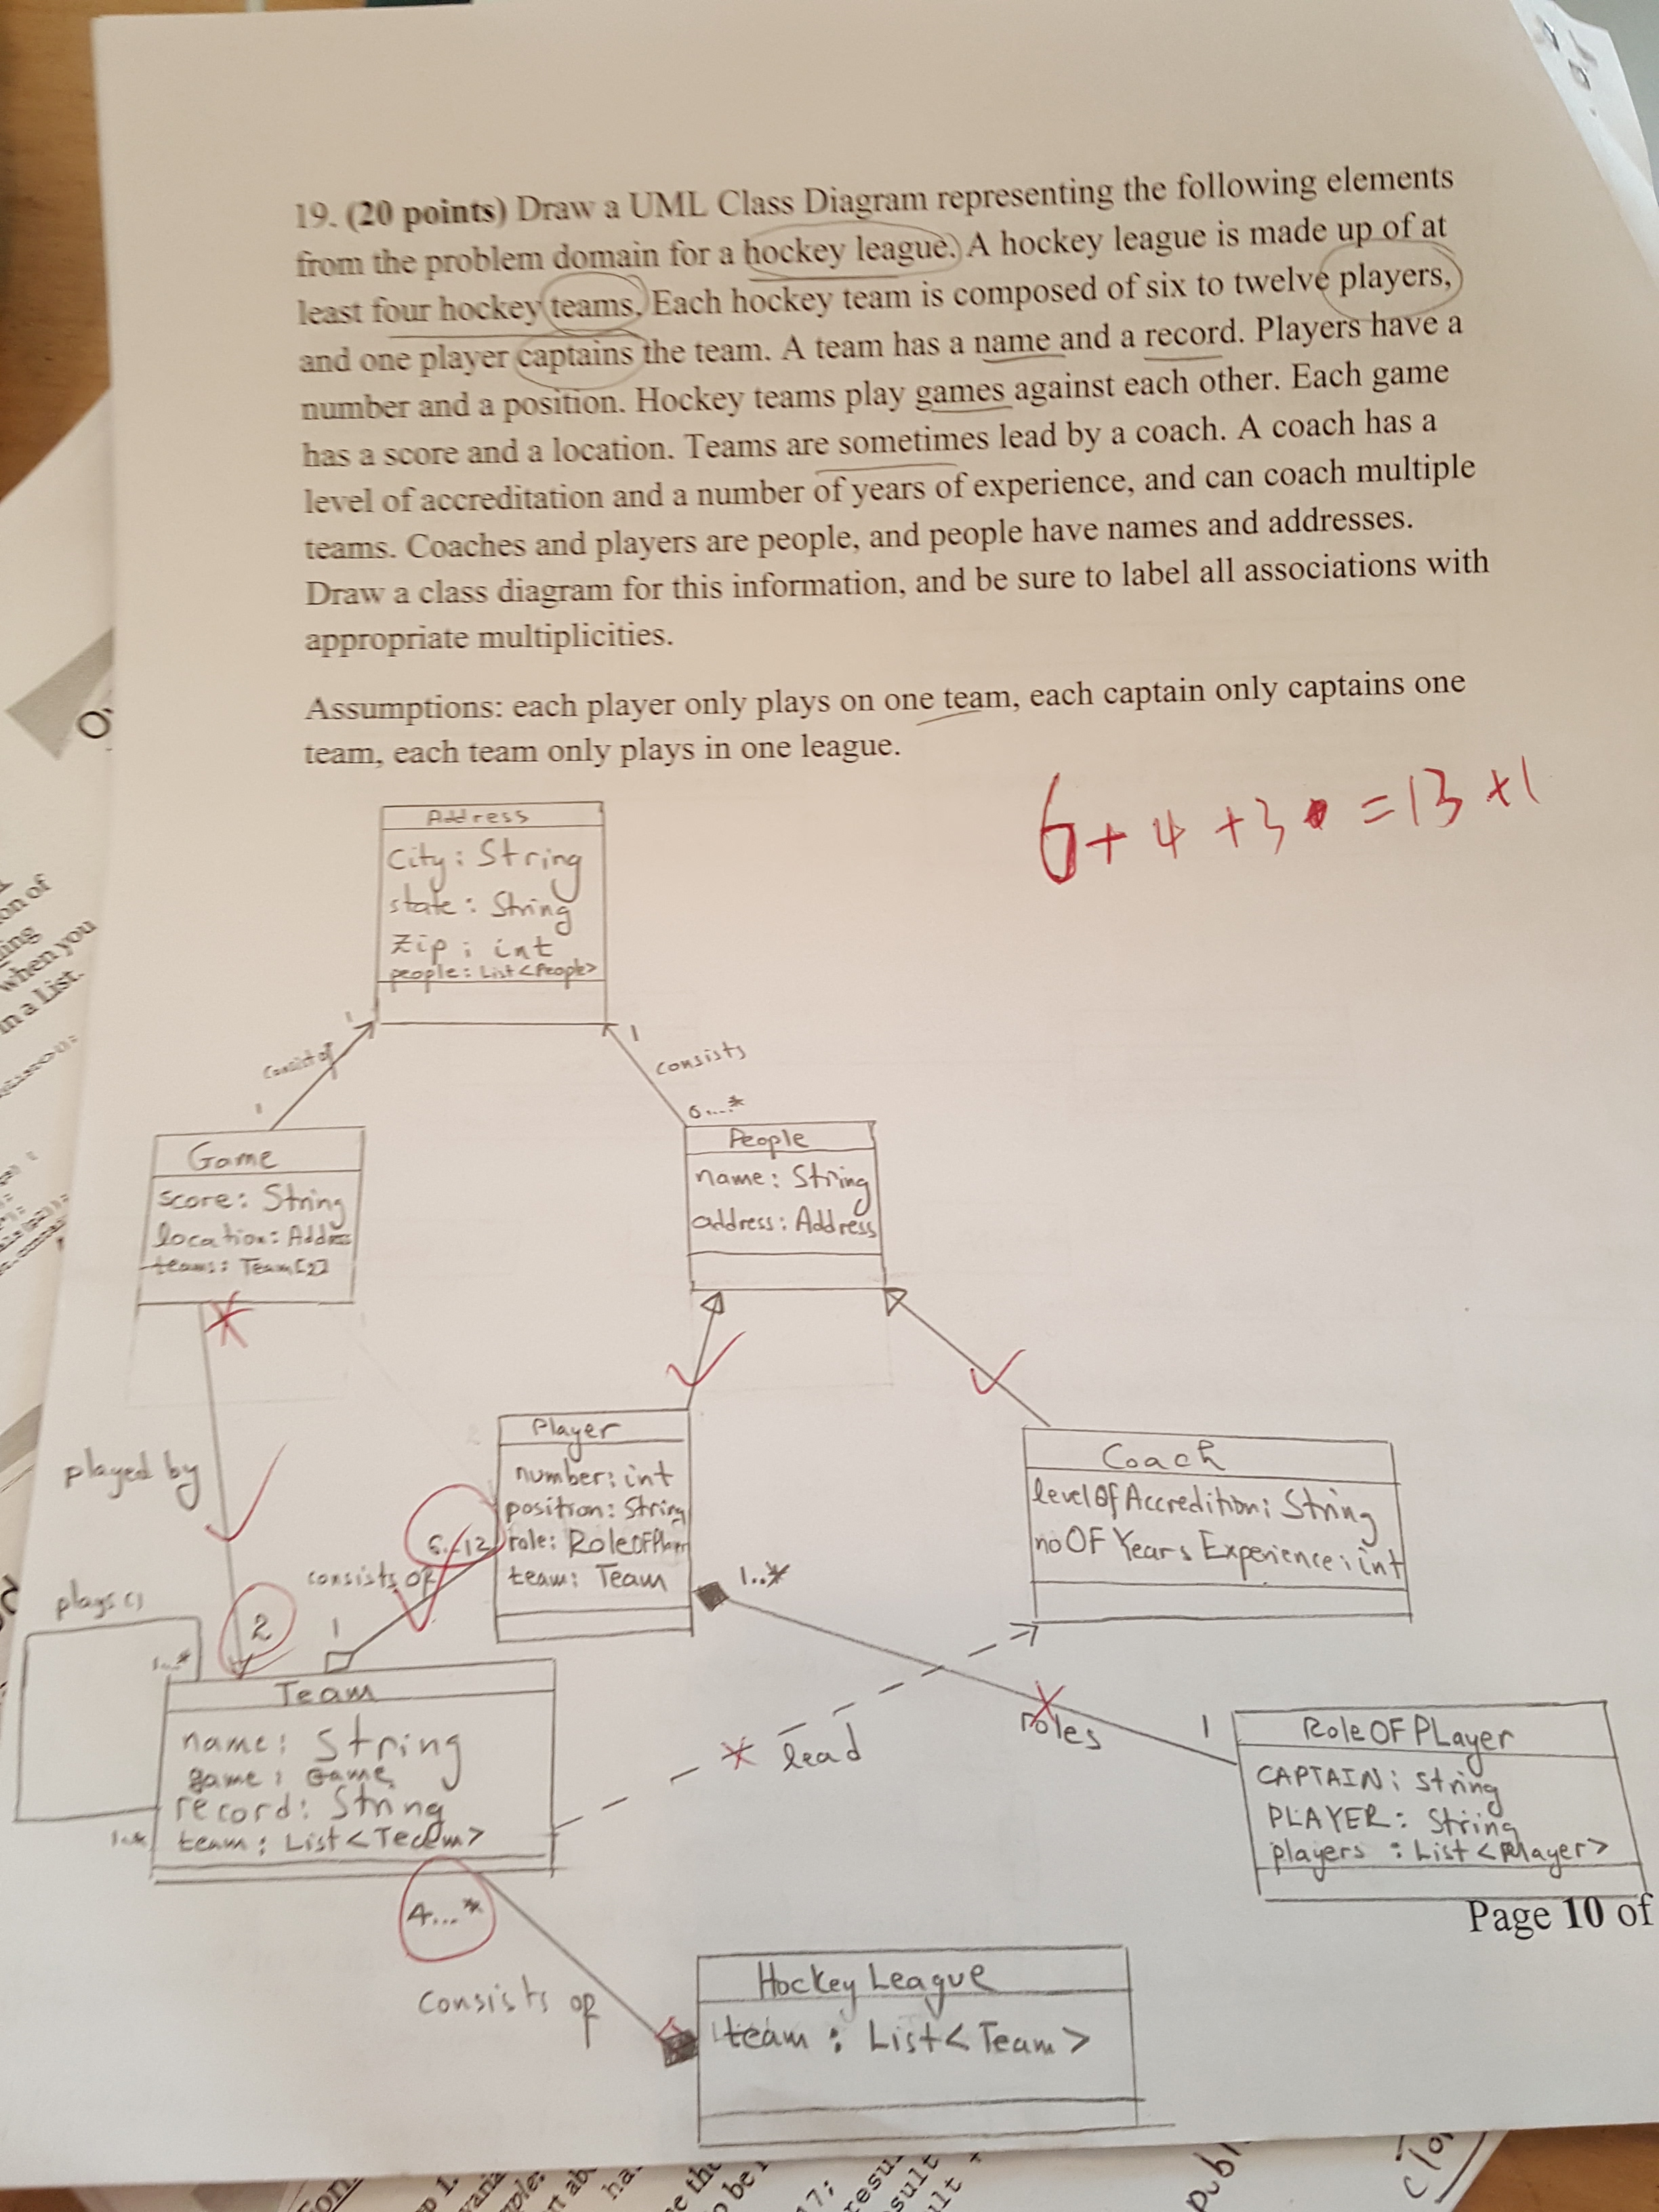 19. (20 points) Draw a UML Class Diagram representing the following elements
from the problem domain for a hockey league. A hockey league is made up of at
least four hockey teams. Each hockey team is composed of six to twelve players,
and one player captains the team. A team has a name and a record. Players have a
number and a position. Hockey teams play games against each other. Each game
has a score and a location. Teams are sometimes lead by a coach. A coach has a
level of accreditation and a number of years of experience, and can coach multiple
teams. Coaches and players are people, and people have names and addresses.
Draw a class diagram for this information, and be sure to label all associations with
appropriate multiplicities.
Assumptions: each player only plays on one team, each captain only captains one
team, each team only plays in one league.
6 + 4 + 3 = 13 + 1
Address
City: String
state: String
Zip: int
people: List<People>
1
1
consists
1
0...*
Game
score: String
location: Address
teams: Team[2]
People
name: String
address: Address
played by
2
Player
number: int
position: String
role: RoleOFPlayer
team: Team
6..12
consists of
1
1..*
Coach
levelOfAccredition: String
noOF Years Experience: int
plays()
1..*
1..*
Team
name: String
game: Game
record: String
team: List<Team>
* lead
roles
1
RoleOFPLayer
CAPTAIN: string
PLAYER: String
players : List<Player>
Page 10 of
4...*
consists of
Hockey League
team : List<Team>
on of
ing
when you
in a List.
publ
clo